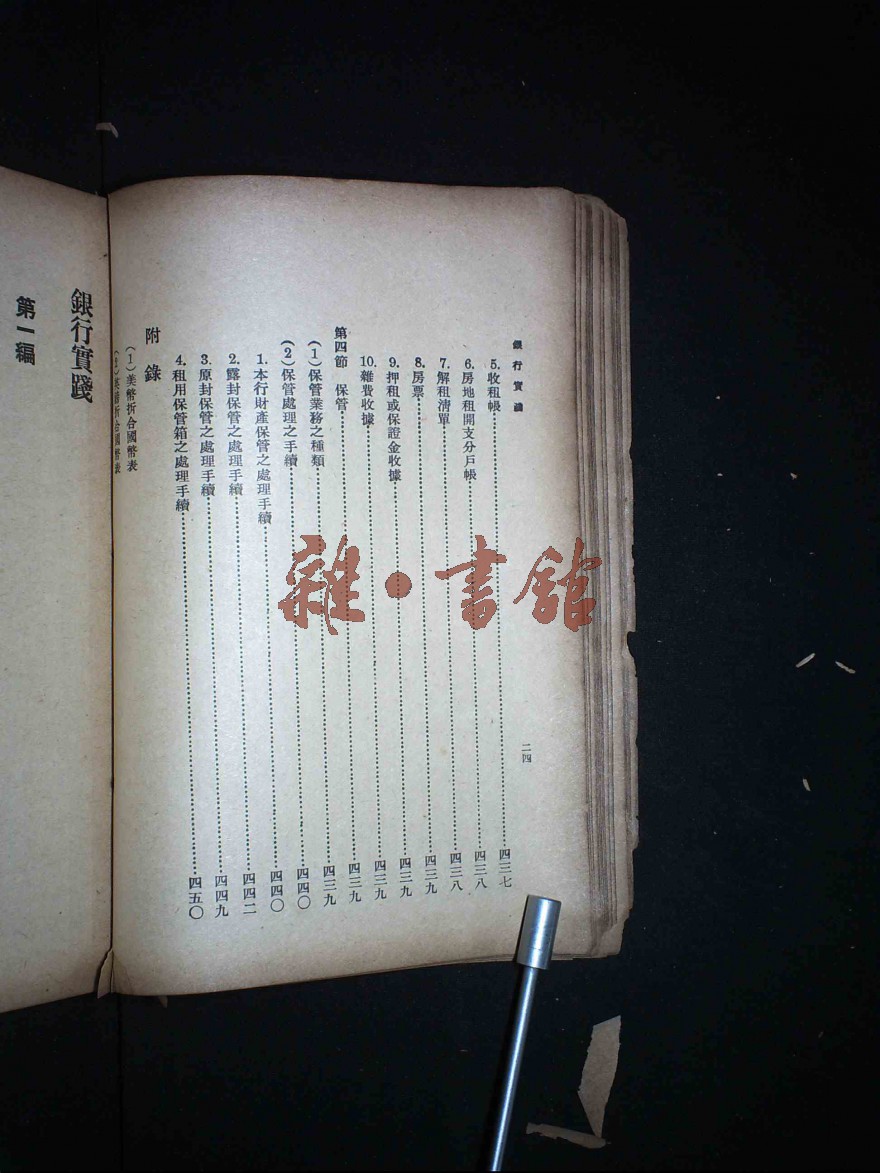 銀行實踐
二四
5. 收租帳……四三七
6. 房地租開支分戶帳……四三八
7. 解租清單……四三八
8. 房票……四三九
9. 押租或保證金收據……四三九
10. 雜費收據……四三九
第四節 保管……四三九
(1) 保管業務之種類……四三九
(2) 保管處理之手續……四四〇
1. 本行財產保管之處理手續……四四〇
2. 露封保管之處理手續……四四二
3. 原封保管之處理手續……四四九
4. 租用保管箱之處理手續……四五〇
附錄
(1) 美幣折合國幣表
(2) 英幣折合國幣表
銀行實踐
第一編
雜·書館